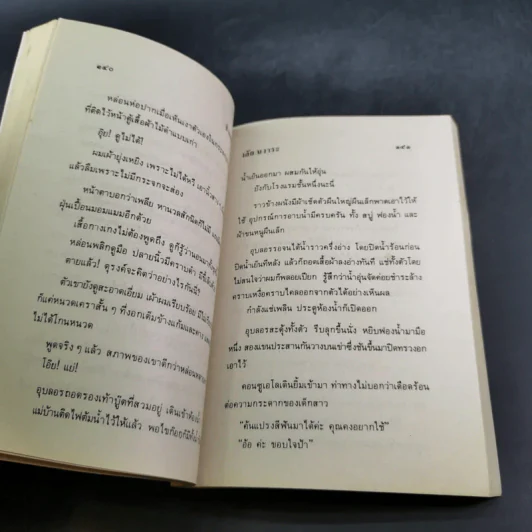 ๑๔๐
หล่อนห่อปากเมื่อเห็นเงาตัวเองในกระจก
ที่ติดไว้หน้าตู้เสื้อผ้าไม้ดำแบบเก่า
อุ๊ย! ดูไม่ได้!
ผมเผ้ายุ่งเหยิง เพราะไม่ได้หวี
แล้วลืมเพราะไม่มีกระจกจะส่อง
หน้าตาบอกว่าเพลีย
ฝุ่นเปื้อนมอมแมมอีกด้วย
เสื้อกางเกงไม่ต้องพูดถึง ดูก็รู้ว่านอนมา
หล่อนพลิกดูมือ ปลายนิ้วมีคราบดำ
ตายแล้ว! ดุรงค์จะคิดว่าอย่างไรกันนี่?
ตัวเขายังดูสะอาดเอี่ยม เผ้าผมเรียบร้อย
ก็แค่หนวดเคราสั้น ๆ ที่งอกเต็มข้างแก้มและคาง
ไม่ได้โกนหนวด
พูดจริงๆ แล้ว สภาพของเขาดีกว่าหล่อน
โอ๊ย! แย่!
อุบลอรถอดรองเท้าบู๊ตที่สวมอยู่ เดินเข้าห้องน้ำ
แม่บ้านติดไฟต้มน้ำไว้ให้แล้ว พอไขก๊อก
๑๔๑
น้ำเย็นออกมา ผสมกันให้อุ่น
ยังกับโรงแรมชั้นหนึ่งนะนี่
ราวข้างผนังมีผ้าเช็ดตัวผืนใหญ่ผืนเล็กพาดเอาไว้ให้
ใช้ อุปกรณ์การอาบน้ำมีครบครัน ทั้ง สบู่ ฟองน้ำ และ
ผ้าขนหนูผืนเล็ก
อุบลอรรอจนได้น้ำราวครึ่งอ่าง โดยปิดน้ำร้อนก่อน
ปิดน้ำเย็นทีหลัง แล้วก็ถอดเสื้อผ้าลงอ่างทันที แช่ทั้งตัวโดย
ไม่สนใจว่าผมก็พลอยเปียก รู้สึกว่าน้ำอุ่นจัดค่อยชำระล้าง
คราบเหงื่อคราบไคลออกจากตัวได้อย่างเห็นผล
กำลังแช่เพลิน ประตูห้องน้ำก็เปิดออก
อุบลอรสะดุ้งทั้งตัว รีบลุกขึ้นนั่ง หยิบฟองน้ำมามือ
หนึ่ง สองแขนประสานกันวางบนเข่าซึ่งชันขึ้นมาปิดทรวงอก
เอาไว้
คอนซูเอโลเดินยิ้มเข้ามา ท่าทางไม่บอกว่าเดือดร้อน
ต่อความกระดากของเด็กสาว
"ดันแปรงสีฟันมาได้ค่ะ คุณคงอยากใช้"
"อ้อ ค่ะ ขอบใจป้า"